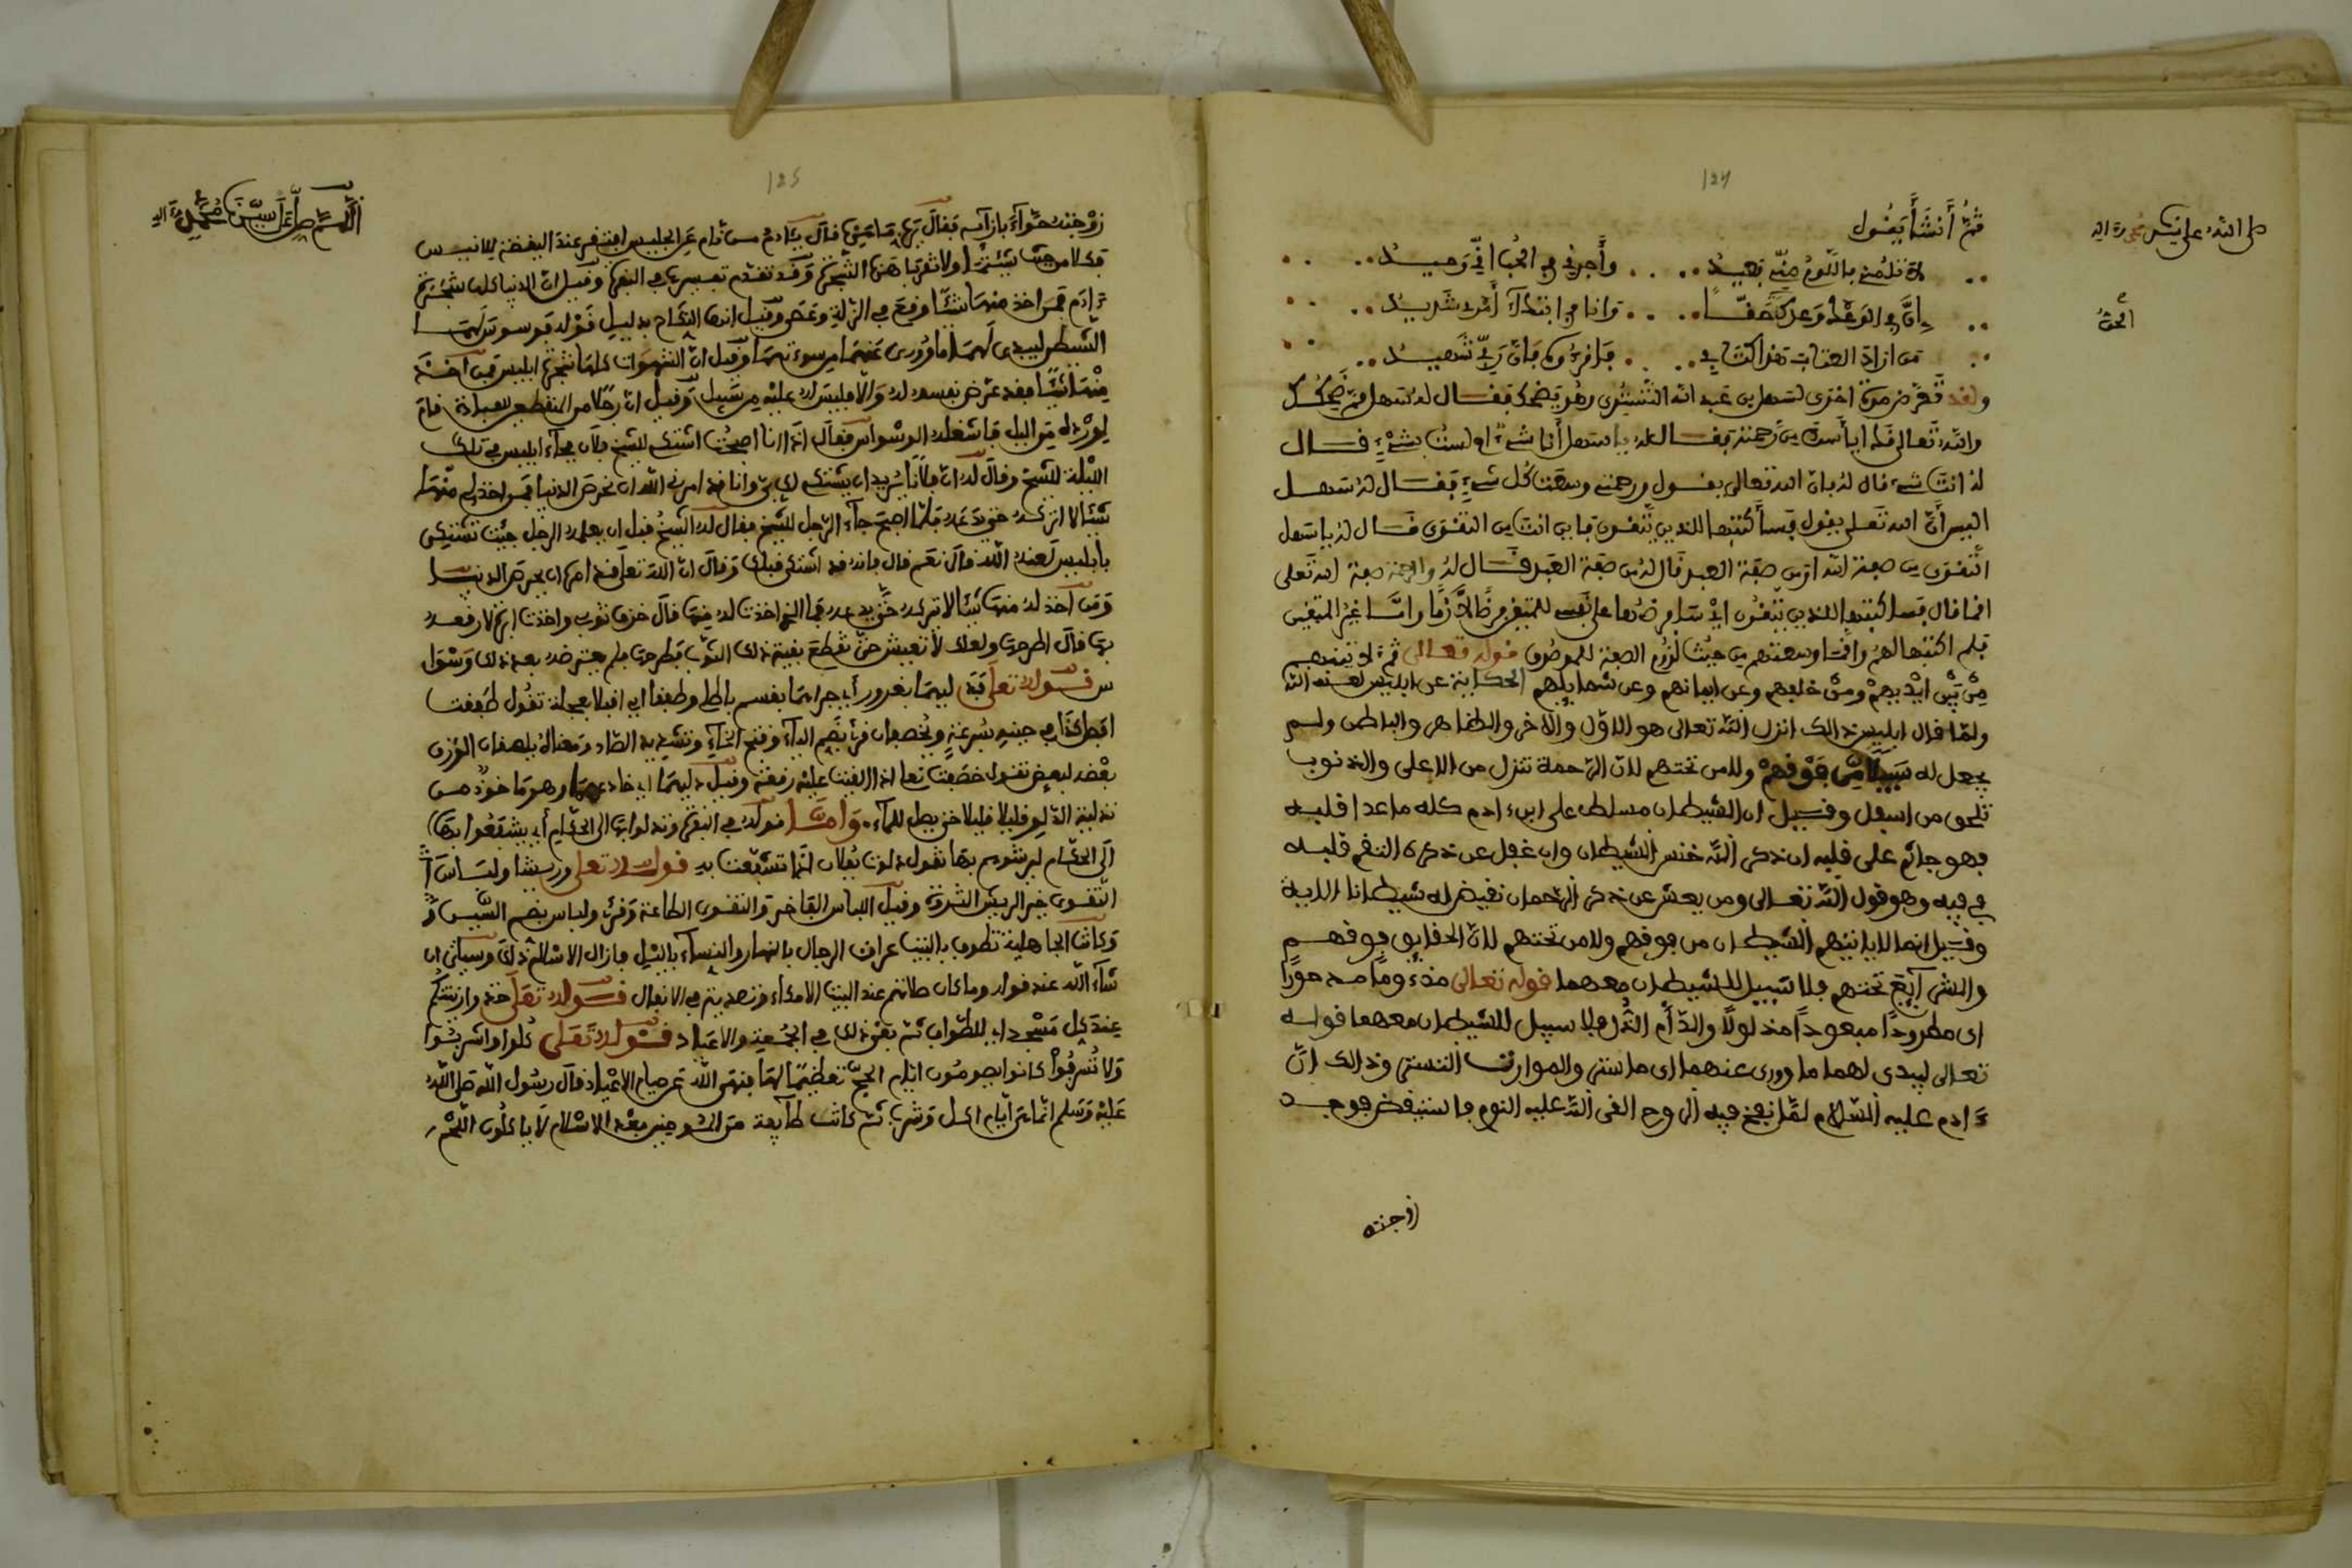 124
صلى الله على نبيك محمد وآله
ثم أنشأ يقول
لا تلمني باللوم مني بعيد وأجرني في الحب اني وحيد
ان في الوعد وعدك حقا وانا في ابتداء أمر شديد
الحق
من اراد العتاب هذا كتابي فاقرءوكم فان ربي شهيد
ولقد تعرض مرة اخرى لسهل بن عبد الله التستري وهو يضحك فقال له سهل مم ضحكك
والله تعالى قد ايأسك من رحمته فقال له يا سهل أنا شيء او لست بشيء قال
له انت شيء قال له فان الله تعالى يقول ورحمتي وسعت كل شيء فقال له سهل
اليس أن الله تعلى يقول فسأكتبها للذين يتقون فاين انت من التقوى قال له يا سهل
التقوى من صفة الله او من صفة العبد قال له من صفة العبد قال له والرحمة صفة الله تعلى
انما قال فسأكتبها للذين يتقون اي سأفرضها على نفسي للمتقين فرضا لازما واما غير المتقين
فلم اكتبها لهم وانما وسعتهم من حيث لزوم الصفة للموصوف قوله تعالى ثم لاتينهم
من بين ايديهم ومن خلفهم وعن ايمانهم وعن شمايلهم الحكاية عن ابليس لعنه الله
ولما قال ابليس ذالك انزل الله تعالى هو الاول والاخر والظاهر والباطن ولم
يجعل له سبيلا من فوقهم ولا من تحتهم لان الرحمة تنزل من الاعلى والذنوب
تلحق من اسفل وقيل ان الشيطان مسلط على ابن ادم كله ما عدا قلبه
فهو جاثم على قلبه ان ذكر الله خنس الشيطان وان غفل عن ذكره التقم قلبه
في فيه وهو قول الله تعالى ومن يعش عن ذكر الرحمان نقيض له شيطانا الاية
وقيل انما لا ياتيهم الشيطان من فوقهم ولا من تحتهم لان الحقايق فوقهم
والشرايع تحتهم فلا سبيل للشيطان معهما قوله تعالى مذءوما مدحورا
اى مطرودا مبعودا مذلولا والذأم الذل فلا سبيل للشيطان معهما قوله
تعالى ليبدي لهما ما وورى عنهما اى ما ستر والموارات التستر وذالك ان
ءادم عليه السلام لما نفخ فيه الروح القى الله عليه النوم فاستيقض فوجد
زوجته
125
اللهم صل على سيدنا محمد وءاله
زوجته حواء بازائه فقال
فكلا من حيث شئتما ولا تقربا هذه الشجرة وقد تقدم تفسيرها في البقرة وقيل ان الدنيا كلها شجرة
ءادم فمن اخذ منها شيئا وقع في الزلة وقيل انها بدليل قوله فوسوس لهما
الشيطان ليبدي لهما ما وورى عنهما من سوءتهما وقيل ان الشهوات كلها شجرة ابليس فمن اخذ
منها شيئا فقد عرض نفسه له والا فليس له عليه من سبيل وقيل ان رجلا من المنقطعين للعبادة قام
لورده من الليل فاشغله الوسواس فقال اذا انا اصبحت اشتكي للشيخ فجاء ابليس في تلك
الليلة للشيخ وقال له ان فلانا يريد ان يشتكي لك بي وانا قد امرني الله ان نحرص الدنيا فمن اخذ لي منها
شيئا لا اتركه حتى فلما اصبح جاء الرجل للشيخ فقال له الشيخ قبل ان يعلمه الرجل جيت تشتكي
بابليس لعنه الله قال نعم قال فانه قد اشتكى قبلك وقال ان الله تعلى قد امره ان يحرص الدنيا
ومن اخذ له منها شيئا لا يتركه حتى فما الذي اخذت له منها قال خرق ثوبي واخذت
بها قال اطرحها ولعلك لا تعيش حتى تقطع بقية ذلك الثوب فطرحها فلم يعترضه بعد ذلك وسوا
س قوله تعلى فدليهما بغرور أي جرأهما بقسم باطل وطفقا اي اقبلا بعجلة تقول طفقت
افعل كذا وقرئ بضم الياء وفتح الخاء وتشديد الصاد ومعناه يلصقان الورق
بعضه لبعض تقول خصفت نعلا اذا القيت عليه رقعة وقيل دليهما اي خادعهما وهو ماخوذ من
تدلية الدلو قليلا قليلا حتى يصل للماء وأما قوله في البقرة وتدلوا بها الى الحكام أي يشفعوا بها
الى الحكام تقول دلوت بفلان اذا تشفعت به قوله تعلى وريشا ولباس
التقوى خير الريش الثروة وقيل اللباس الفاخر والتقوى الطاعة وقرئ ولباس بضم السين
وكانت الجاهلية تطوف بالبيت عراة الرجال بالنهار والنساء بالليل فازال الاسلام ذلك وسيأتي ان
شاء الله عند قوله وما كان صلاتهم عند البيت الا مكاء وتصدية في الانفال قوله تعلى خذوا زينتكم
عند كل مسجد اي للطواف ثم بقي ذلك في الجمعة والاعياد قوله تعلى كلوا واشربوا
ولا تسرفوا كانوا يصومون ايام الحج تعظيما لها فنهى الله عن صيام الاعياد قال رسول الله صلى الله
عليه وسلم انما هي أيام اكل وشرب ثم كانت طآيفة من بعد الاسلام لا ياكلون اللحم